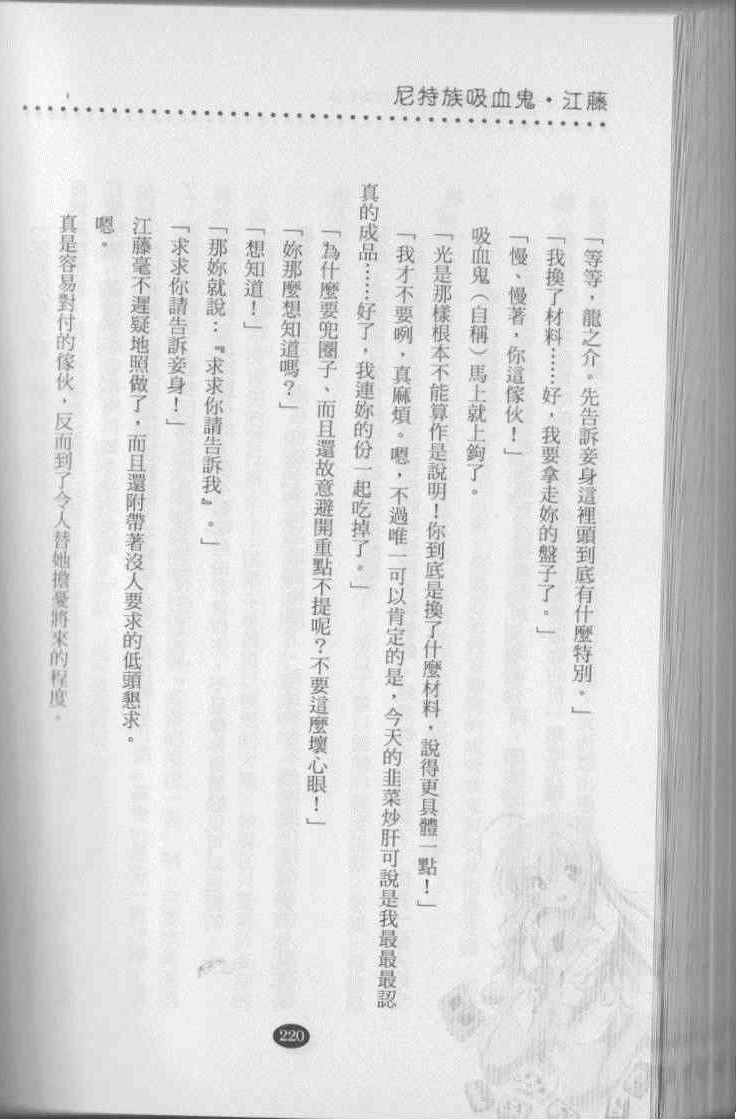 尼特族吸血鬼・江藤
「等等，龍之介。先告訴妾身這裡頭到底有什麼特別。」
「我換了材料……好，我要拿走妳的盤子了。」
「慢、慢著，你這傢伙！」
吸血鬼（自稱）馬上就上鉤了。
「光是那樣根本不能算作是說明！你到底是換了什麼材料，說得更具體一點！」
「我才不要咧，真麻煩。嗯，不過唯一可以肯定的是，今天的韭菜炒肝可說是我最最最認
真的成品……好了，我連妳的份一起吃掉了。」
「為什麼要兜圈子、而且還故意避開重點不提呢？不要這麼壞心眼！」
「妳那麼想知道嗎？」
「想知道！」
「那妳就說：『求求你請告訴我』。」
「求求你請告訴妾身！」
江藤毫不遲疑地照做了，而且還附帶著沒人要求的低頭懇求。
嗯。
真是容易對付的傢伙，反而到了令人替她擔憂將來的程度。
220